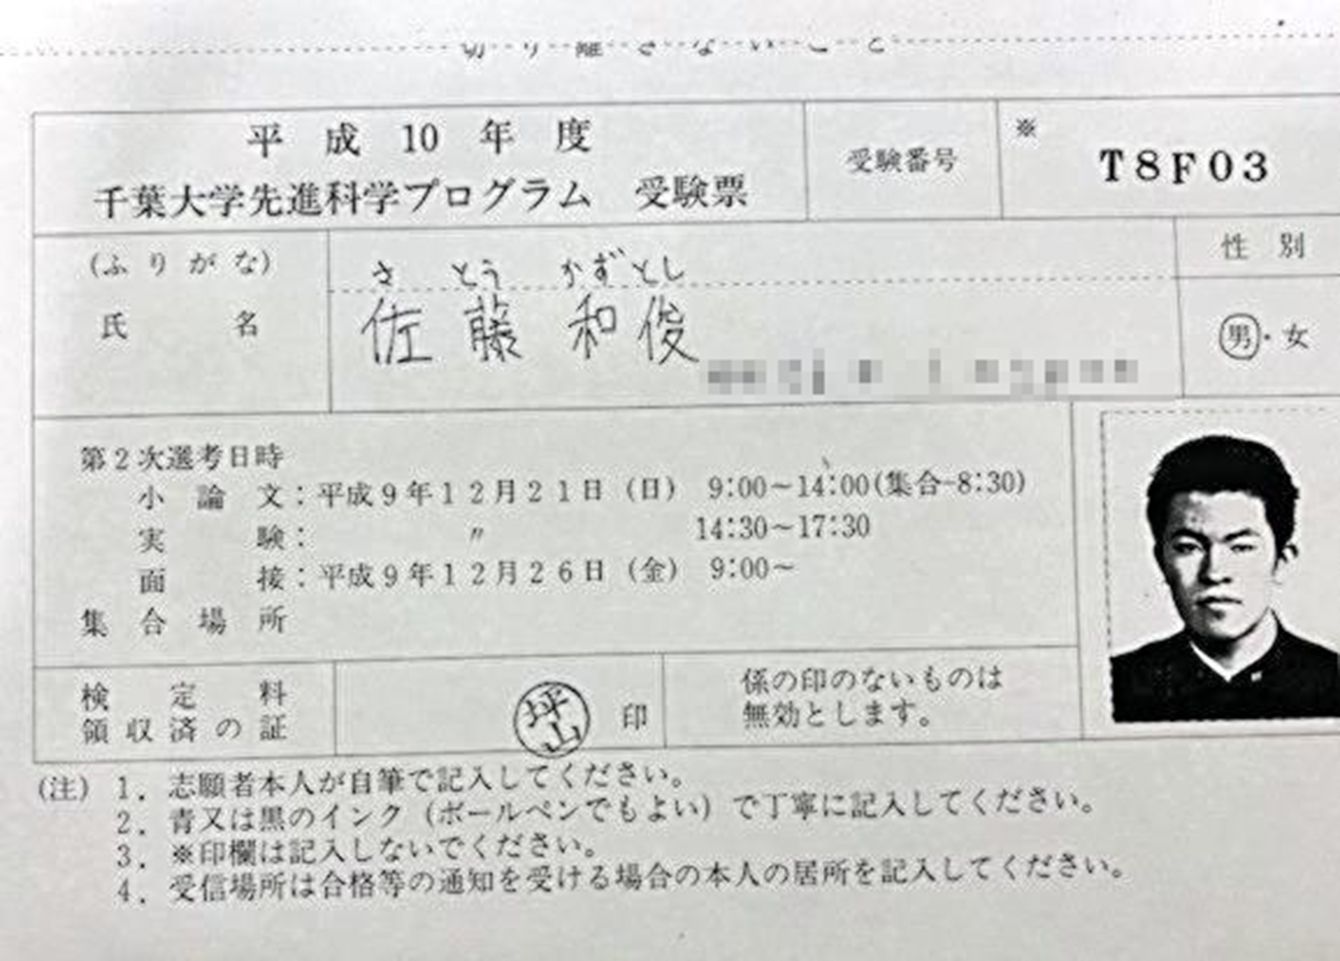 切り離さないこと
平成10年度
千葉大学先進科学プログラム 受験票
受験番号
※
T8F03
(ふりがな)
さとう かずとし
性別
氏名
佐藤和俊
男・女
第2次選考日時
小論文：平成9年12月21日（日） 9:00～14:00(集合-8:30)
実験： 〃 14:30～17:30
面接：平成9年12月26日（金） 9:00～
集合場所
検定料
領収済の証
坪山
印
係の印のないものは
無効とします。
(注) 1．志願者本人が自筆で記入してください。
2．青又は黒のインク（ボールペンでもよい）で丁寧に記入してください。
3．※印欄は記入しないでください。
4．受信場所は合格等の通知を受ける場合の本人の居所を記入してください。